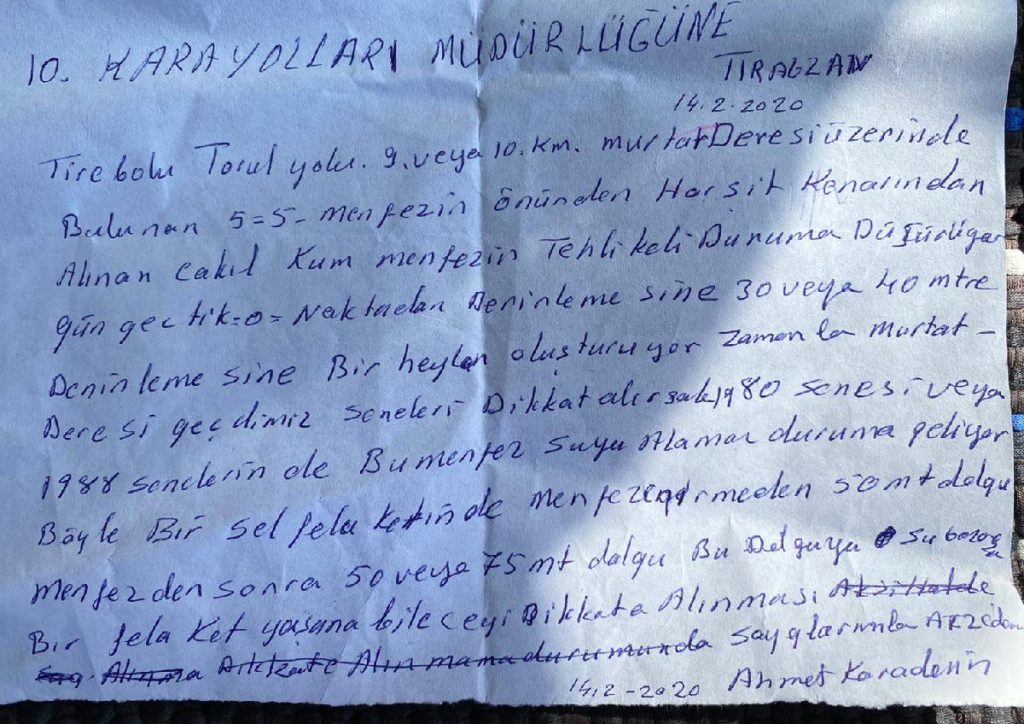 10. KARAYOLLARI MÜDÜRLÜĞÜNE
TIRABZAN
14.2.2020
Tirebolu Torul yolu. 9. veya 10. Km. murtat Deresi üzerinde
Bulunan 5=5- menfezin önünden Harşit Kenarından
Alınan Cakıl Kum menfezin Tehlikeli Durumа Düşürüyor
gün gectik=0= Naktadan Derinleme sine 30 veya 40 mtre
Derinleme sine Bir heylan oluşturuyor zamanla murtat-
Deresi geçdimiz seneleri Dikkat alırsak 1980 senesi veya
1988 senelerin de Bu menfez suyu Alamaz duruma geliyor
Böyle Bir sel felaketinde menfeze girmeden 50 mt dalgu
menfezden sonra 50 veya 75 mt dalgu Bu Dalguya su
Bir felaket yaşana bileceyi Dikkata Alınması
Alınma Dikkate Alınmama durumunda saygılarımla ARZ eden
14.2-2020 Ahmet Karadenin